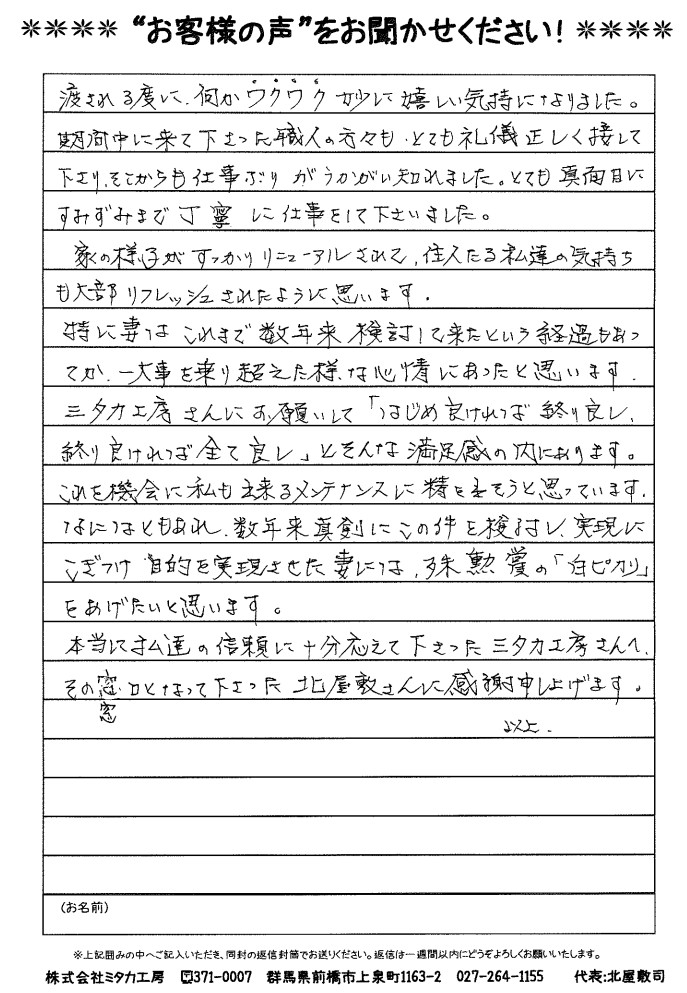 ＊＊＊＊ “お客様の声”をお聞かせください！ ＊＊＊＊
渡される度に、何かワクワク妙に嬉しい気持になりました。
期間中に来て下さった職人の方々も、とても礼儀正しく接して
下さり、そこからも仕事ぶりがうかがい知れました。とても真面目に
すみずみまで丁寧に仕事をして下さいました。
家の様子がすっかりリニューアルされて、住人たる私達の気持ち
も大部リフレッシュされたように思います。
特に妻はこれまで数年来検討して来たという経過もあっ
てか、一大事を乗り超えた様な心情にあったと思います。
ミタカ工房さんにお願いして「はじめ良ければ終り良し、
終り良ければ全て良し」とそんな満足感の内にあります。
これを機会に私も出来るメンテナンスに精を出そうと思っています。
なにはともあれ、数年来真剣にこの件を検討し、実現に
こぎつけ目的を実現させた妻には、殊勲賞の「金ピカリ」
をあげたいと思います。
本当に私達の信頼に十分応えて下さったミタカ工房さんへ、
その窓口となって下さった北屋敷さんに感謝申し上げます。
窓
以上.
(お名前)
※上記囲みの中へご記入いただき、同封の返信封筒でお送りください。返信は一週間以内にどうぞよろしくお願いいたします。
株式会社ミタカ工房 〒371-0007 群馬県前橋市上泉町1163-2 027-264-1155 代表:北屋敷司